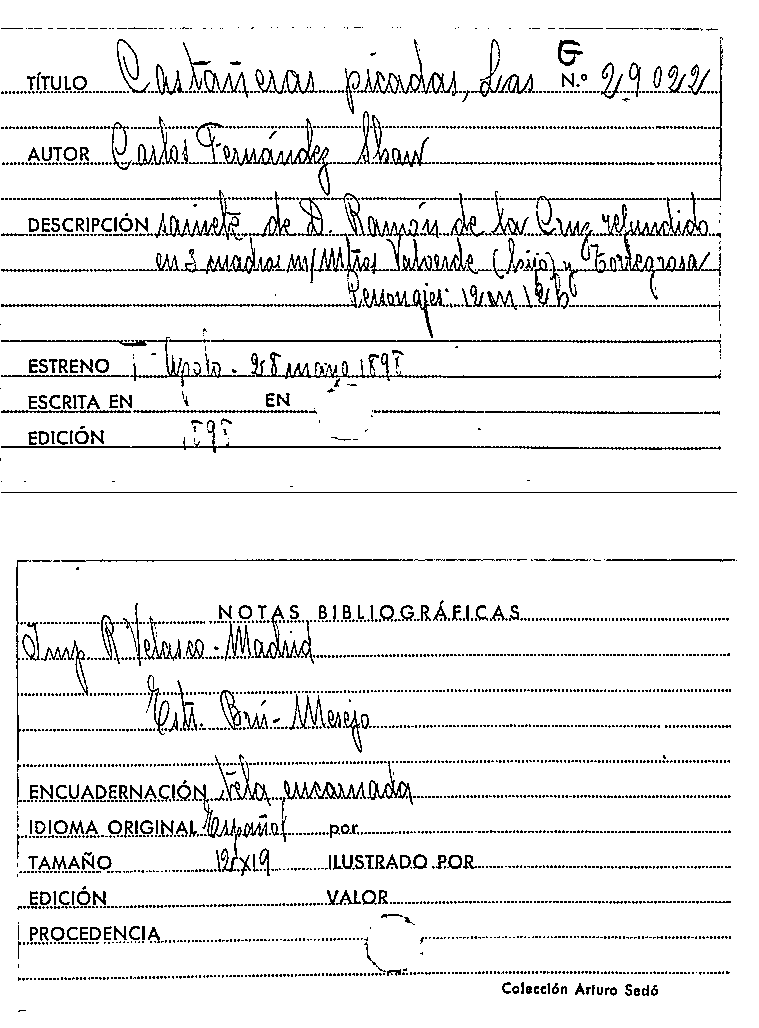 G
TÍTULO Castañeras picadas, Las N.º 29022
AUTOR Carlos Fernández Shaw
DESCRIPCIÓN sainete de D. Ramón de la Cruz refundido
en 3 cuadros m/Mtros Valverde (hijo) y Torregrosa
Personajes: 12 m 12 h
ESTRENO T- Apolo - 28 mayo 1898
ESCRITA EN EN
EDICIÓN 1898
NOTAS BIBLIOGRÁFICAS
Imp R Velasco - Madrid
Estr. Brú - Mesejo
ENCUADERNACIÓN tela encarnada
IDIOMA ORIGINAL Español por
TAMAÑO 12x19 ILUSTRADO POR
EDICIÓN VALOR
PROCEDENCIA
Colección Arturo Sedó